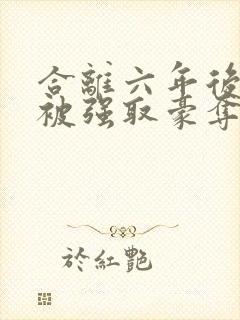 合離六年後
被强取豪奪
於紅艷